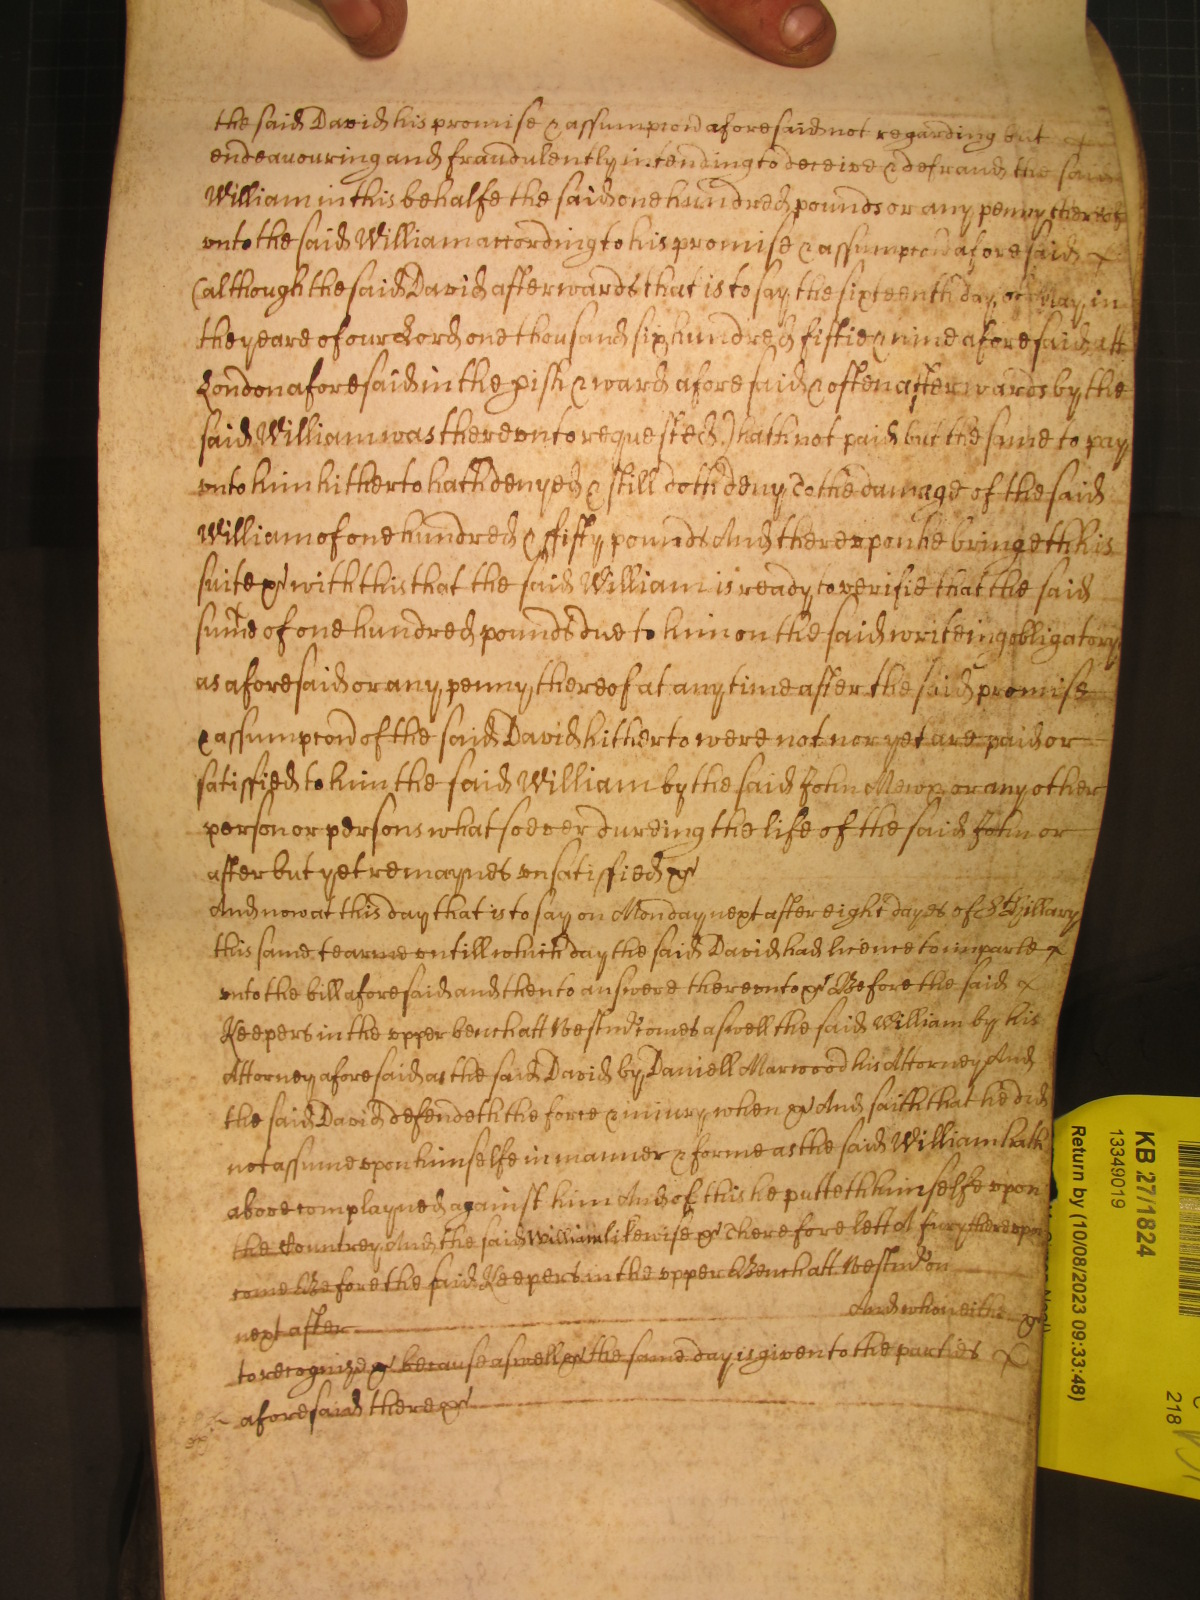 the said David his promise & assumpcon aforesaid not regarding but
endeavouring and fraudulently intending to deceive & defraud the said
William in this behalfe the said one hundred pounds or any penny thereof
vnto the said William according to his promise & assumpcon aforesaid
(although the said David afterwards that is to say the sixteenth day of May in
the yeare of our Lord one thousand six hundred fiftie & nine aforesaid att
London aforesaid in the pish & ward aforesaid & often afterwards by the
said William was therevnto requested) hath not paid but the same to pay
vnto him hitherto hath denyed & still doth deny To the damage of the said
William of one hundred & ffifty pounds And therevpon he bringeth his
suite &c with this that the said William is ready to verifie that the said
sume of one hundred pounds due to him on the said writeing obligatory
as aforesaid or any penny thereof at any time after the said promise
& assumpcon of the said David hitherto were not nor yet are paid or
satisfied to him the said William by the said John Mewx or any other
person or persons whatsoever dureing the life of the said John or
after but yet remaynes vnsatisfied &c
And now at this day that is to say on Monday next after eight dayes of St Hillary
this same tearme vntill which day the said David had licence to imparle
vnto the bill aforesaid and then to answere therevnto &c Before the said
Keepers in the vpper bench att Westmr comes aswell the said William by his
Attorney aforesaid as the said David by Daniell Marwood his Attorney And
the said David defendeth the force & iniury when &c And saith that he did
not assume vpon himselfe in manner & forme as the said William hath
above complayned against him And of this he putteth himselfe vpon
the Countrey And the said William likewise &c Therefore lett A Jury therevpon
come Before the said Keepers in the vpper Bench att Westmr on
next after And who neither &c
to recognize &c because aswell &c the same day is given to the parties
aforesaid there &c
KB 27/1824
13349019
Return by (10/08/2023 09:33:48)
218